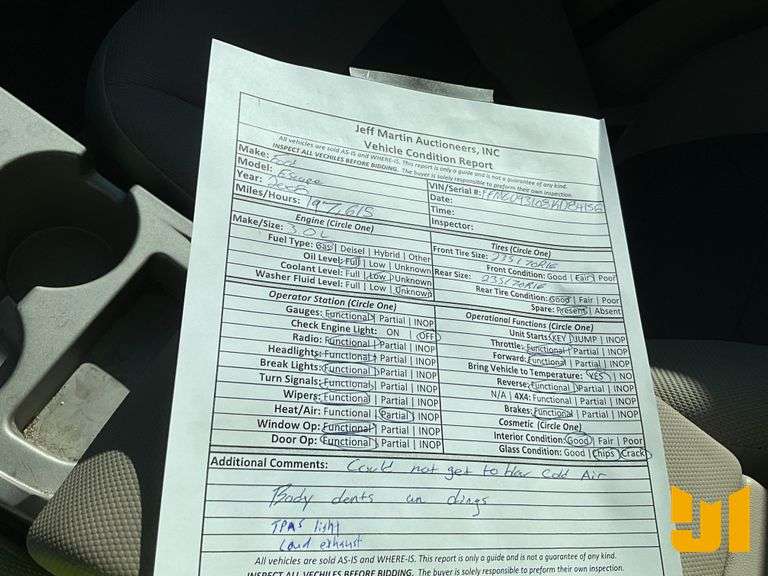 Jeff Martin Auctioneers, INC
Vehicle Condition Report
All vehicles are sold AS-IS and WHERE-IS. This report is only a guide and is not a guarantee of any kind.
INSPECT ALL VECHILES BEFORE BIDDING. The buyer is solely responsible to preform their own inspection.
Make: Ford
Model: Escape
Year:
Miles/Hours: 197,615
VIN/Serial #:
Date:
Time:
Inspector:
Engine (Circle One)
Make/Size: 3.0L
Fuel Type: Gas | Deisel | Hybrid | Other
Oil Level: Full | Low | Unknown
Coolant Level: Full | Low | Unknown
Washer Fluid Level: Full | Low | Unknown
Tires (Circle One)
Front Tire Size: 235/70R16
Front Condition: Good | Fair | Poor
Rear Size: 235/70R16
Rear Tire Condition: Good | Fair | Poor
Spare: Present | Absent
Operator Station (Circle One)
Gauges: Functional | Partial | INOP
Check Engine Light: ON | OFF
Radio: Functional | Partial | INOP
Headlights: Functional | Partial | INOP
Break Lights: Functional | Partial | INOP
Turn Signals: Functional | Partial | INOP
Wipers: Functional | Partial | INOP
Heat/Air: Functional | Partial | INOP
Window Op: Functional | Partial | INOP
Door Op: Functional | Partial | INOP
Operational Functions (Circle One)
Unit Starts: KEY | JUMP | INOP
Throttle: Functional | Partial | INOP
Forward: Functional | Partial | INOP
Bring Vehicle to Temperature: YES | NO
Reverse: Functional | Partial | INOP
N/A | 4X4: Functional | Partial | INOP
Brakes: Functional | Partial | INOP
Cosmetic (Circle One)
Interior Condition: Good | Fair | Poor
Glass Condition: Good | Chips | Crack
Additional Comments: Could not get to blow Cold Air
Body dents an dings
TPMS light
Loud exhaust
All vehicles are sold AS-IS and WHERE-IS. This report is only a guide and is not a guarantee of any kind.
INSPECT ALL VECHILES BEFORE BIDDING. The buyer is solely responsible to preform their own inspection.